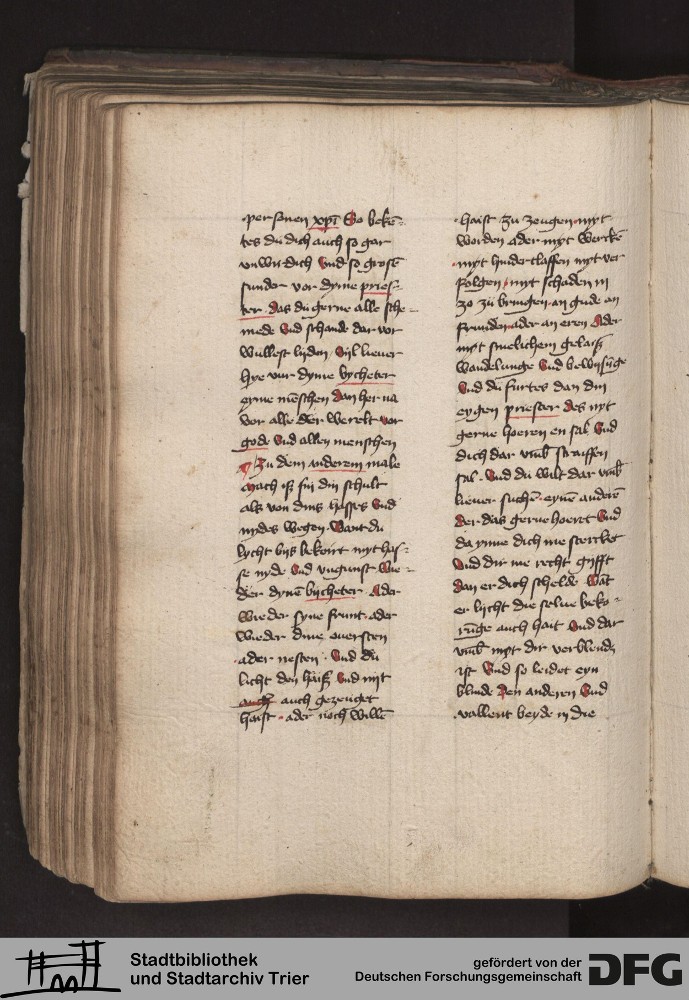 personen xpi So bekē-
tes du dich auch so gar
vnwirdich Vnd so grosē
sunder vor dyme pries-
ter das du gerne alle sche-
mede Vnd schande dar vor
wullest lyden Vyl lieuer
hye vur dyme bychter
eyme mēschen dan her na
vor alle der werelt vor
gode Vnd allen menschen
Zu dem anderem male
mach iß sin din schult
als von dins hasses Vnd
nydes wegen Want du
lycht bijs bekoirt myt has-
se nyde Vnd vngunst wie-
der dynē bijcheter Ader
wieder syne frunt ader
wieder dine ouersten
ader nesten Vnd du
licht den haiß Vnd nijt
auch auch gezeuget
haist ader noch willē
haist zu zeugen myt
worden ader myt werckē
myt hinderclaffen myt ver
folgen myt schaden in
zo zu brengen an gude an
frunden ader an eren Ader
myt smelichem gelaiß
wandelunge Vnd bewysūge
Vnd du furtes dan din
eygen priester des nyt
gerne hoeren en sal Vnd
dich dar vmb straiffen
sal Vnd du wilt dar vmb
lieuer suchē eynē anderē
der das gerne hoeret Vnd
da ynne dich me stercket
Vnd dir me recht gijfft
dan er dich schelde Want
er lijcht die selue beko-
rūge auch hait Vnd dar
vmb myt dir verblendt
ist Vnd so leidet eyn
blinde Den anderen Vnd
vallent beyde in die
Stadtbibliothek
und Stadtarchiv Trier
gefördert von der
Deutschen Forschungsgemeinschaft
DFG